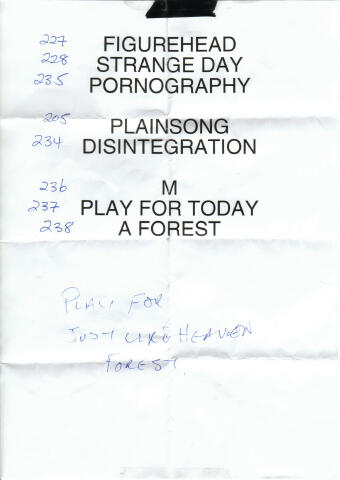 227 FIGUREHEAD
228 STRANGE DAY
235 PORNOGRAPHY
205 PLAINSONG
234 DISINTEGRATION
236 M
237 PLAY FOR TODAY
238 A FOREST
PLAY FOR
JUST LIKE HEAVEN
FOREST.